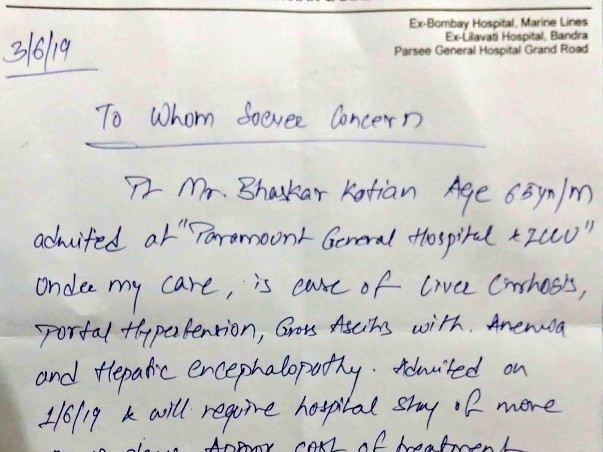 Ex-Bombay Hospital, Marine Lines
Ex-Lilavati Hospital, Bandra
Parsee General Hospital Grand Road
3/6/19
To Whom Soever Concern
Pt Mr. Bhaskar Kotian Age 65yr/m
admited at "Paramount General Hospital & ICCU"
Under my care, is case of Liver Cirrhosis,
Portal Hypertension, Gross Ascitis with. Anemia
and Hepatic encephalopathy. Admited on
1/6/19 & will require hospital stay of more
days Approx cost of treatment